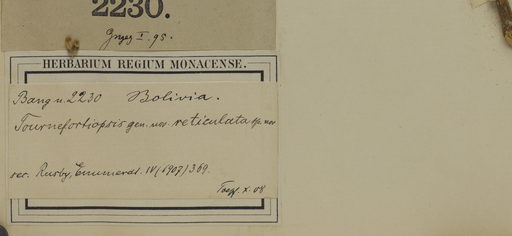 2230.
HERBARIUM REGIUM MONACENSE.
Bang n. 2230 Bolivia.
Tournefortiopsis gen. nov. reticulata sp. nov
sec. Rusby, Enumerat. IV (1907) 369.
X. 08